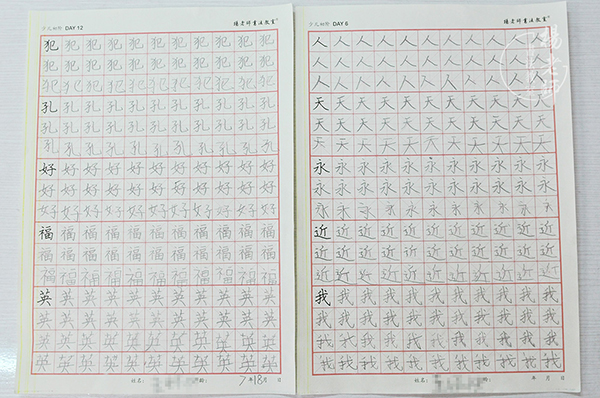 少儿初阶 DAY 12
老师書法教室
犯犯犯犯犯犯犯犯犯犯犯
犯犯犯犯犯犯犯犯犯犯犯
犯犯犯犯犯犯犯犯犯犯犯
孔孔孔孔孔孔孔孔孔孔孔
孔孔孔孔孔孔孔孔孔孔孔
孔孔孔孔孔孔孔孔孔孔孔
好好好好好好好好好好好
好好好好好好好好好好好
好好好好好好好好好好好
福福福福福福福福福福福
福福福福福福福福福福福
福福福福福福福福福福福
英英英英英英英英英英英
英英英英英英英英英英英
英英英英英英英英英英英
英英英英英英英英英英英
姓名： 龄： 7年18月 日
少儿初阶 DAY 6
老师書法教室
人人人人人人人人人人人
人人人人人人人人人人人
人人人人人人人人人人人
天天天天天天天天天天天
天天天天天天天天天天天
天天天天天天天天天天天
永永永永永永永永永永永
永永永永永永永永永永永
永永永永永永永永永永永
近近近近近近近近近近近
近近近近近近近近近近近
近近近近近近近近近近近
我我我我我我我我我我我
我我我我我我我我我我我
我我我我我我我我我我我
我我我我我我我我我我我
姓名： 龄： 年 月 日